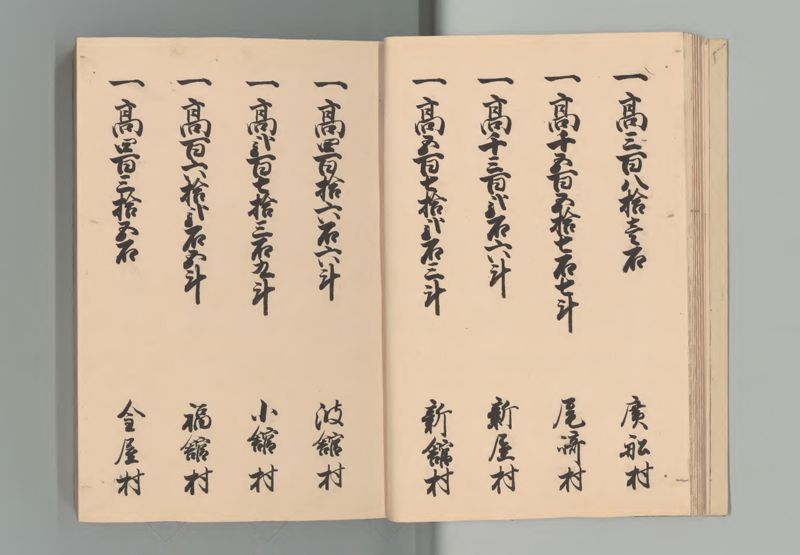 一高三百八拾壱石 廣船村
一高千五百五拾七石七斗 尾崎村
一高千三百弐石六斗 新屋村
一高五百七拾弐石三斗 新舘村
一高四百拾六石六斗 波舘村
一高弐百七拾三石九斗 小舘村
一高百六拾弐石五斗 福舘村
一高四百三拾五石 金屋村